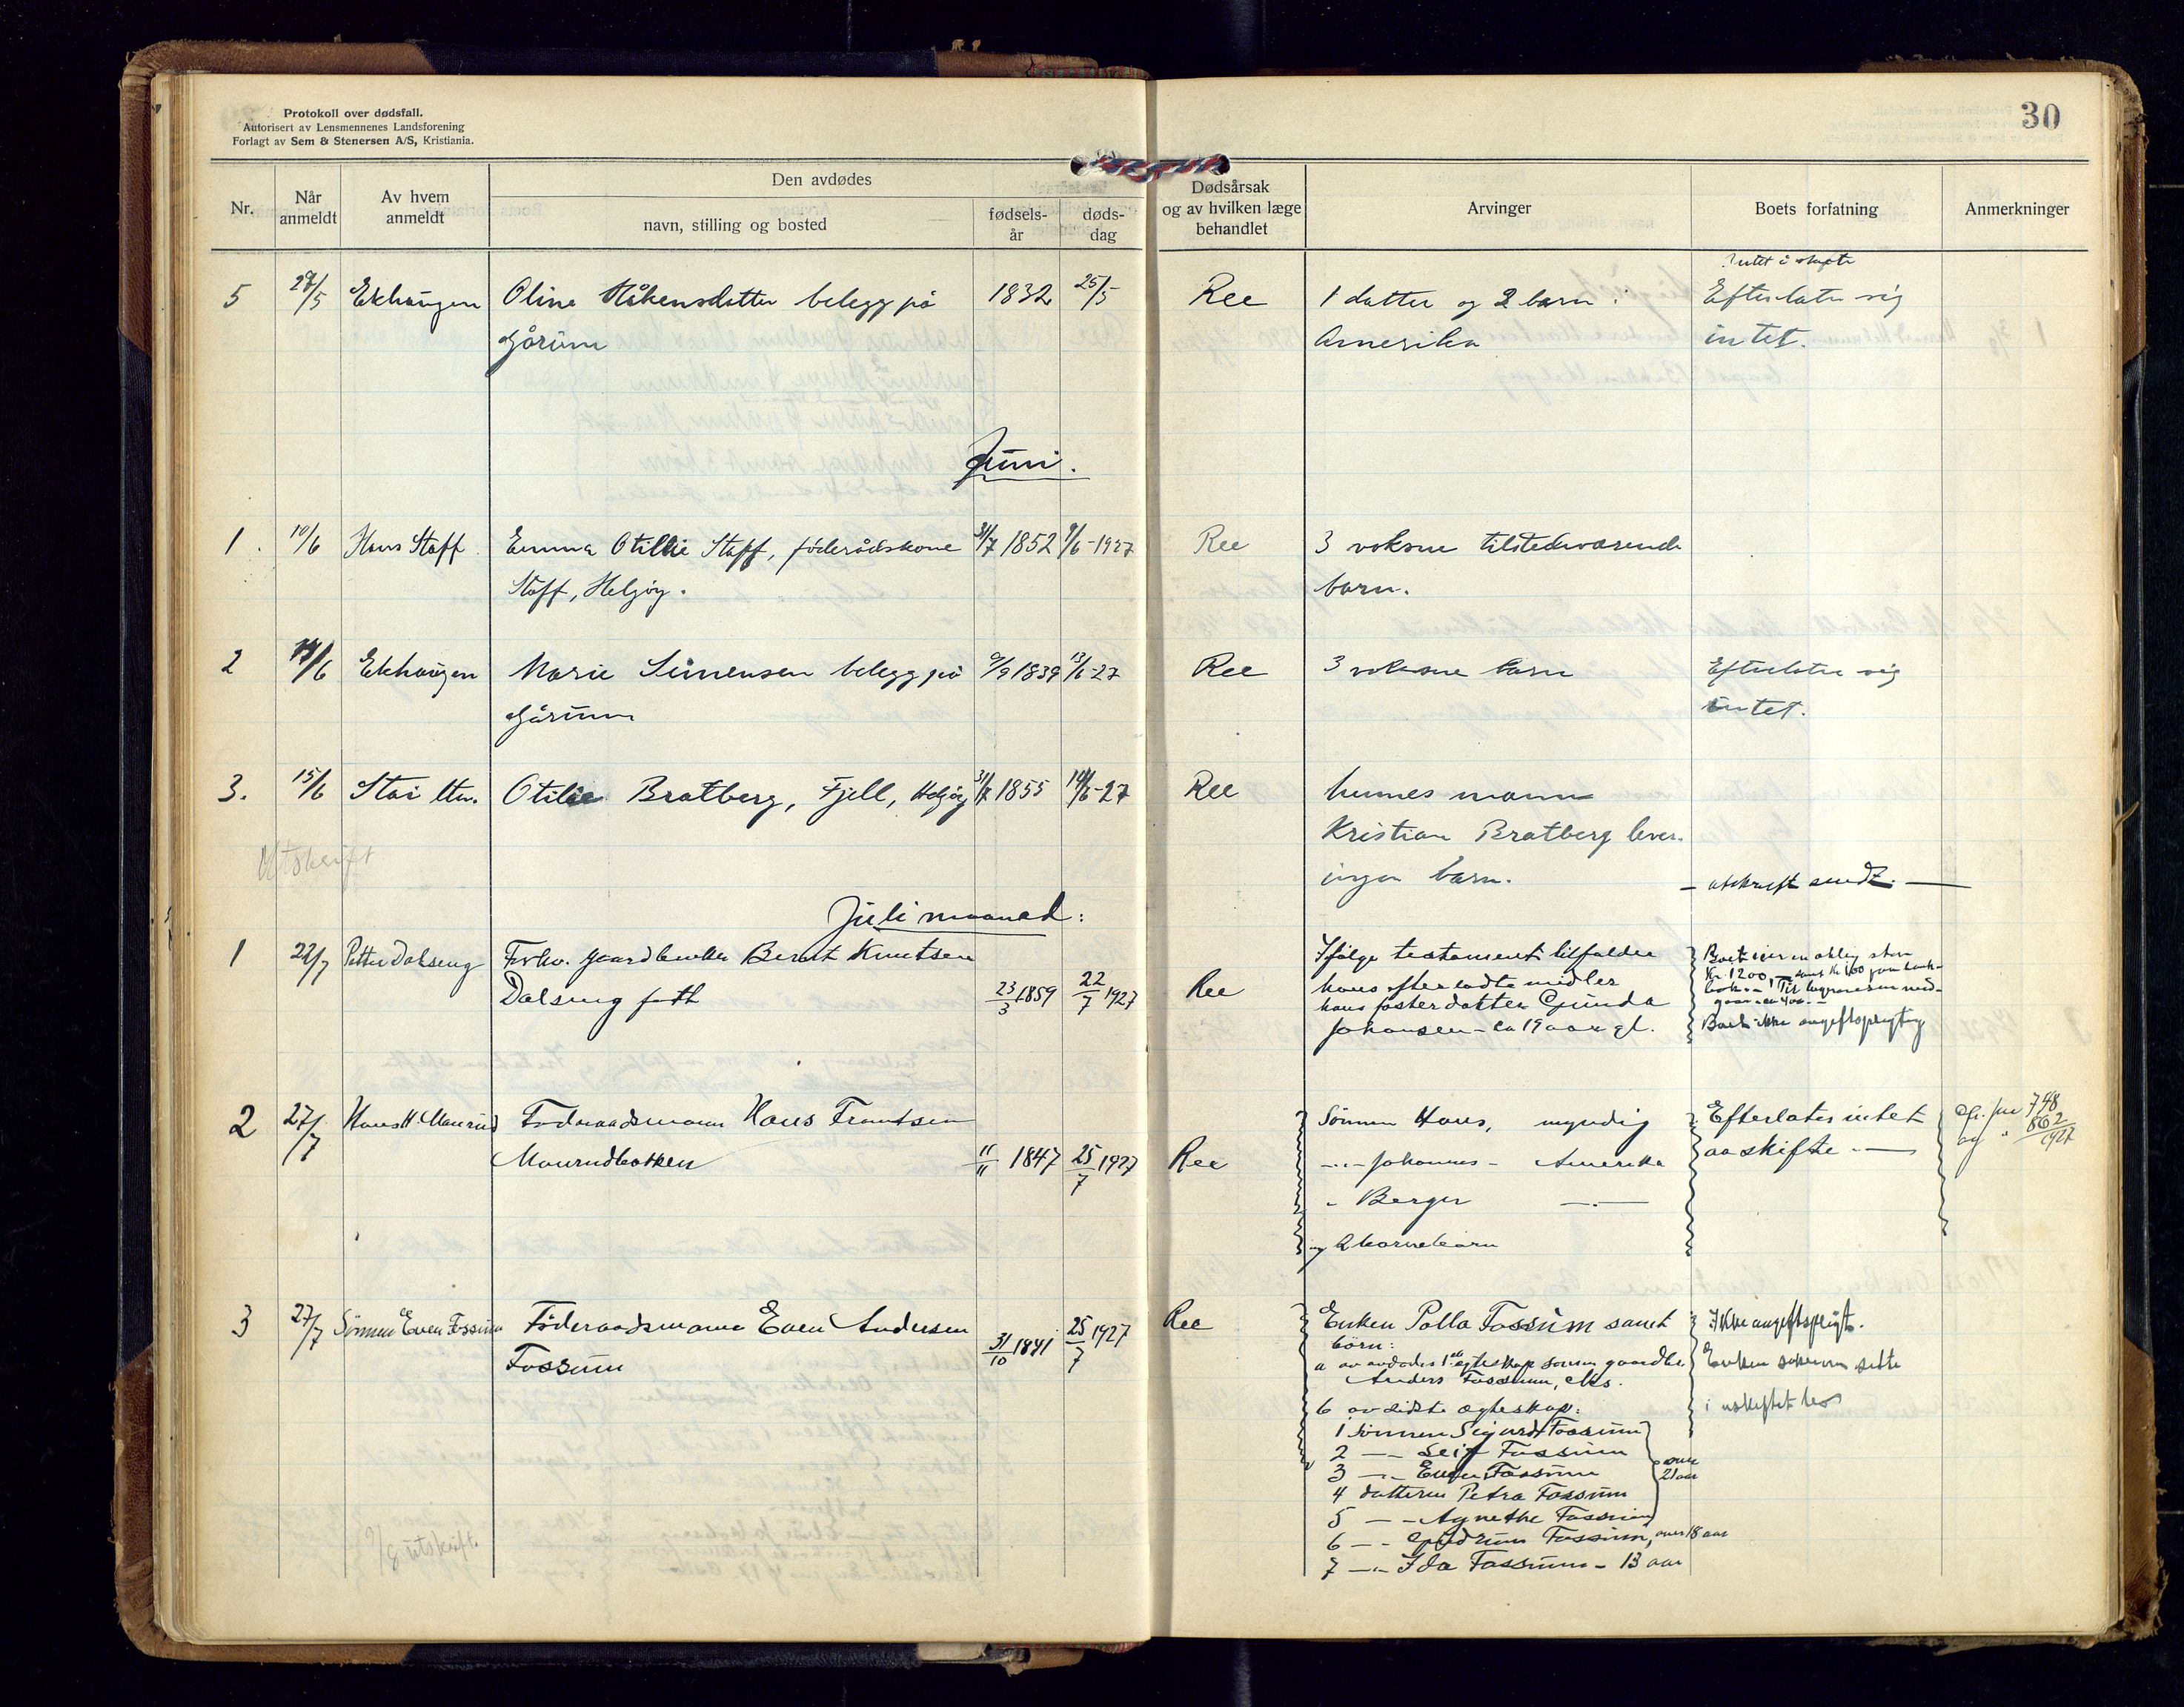 Protokoll over dødsfall.
Autorisert av Lensmennenes Landsforening
Forlagt av Sem & Stenersen A/S, Kristiania.
30
Nr.
Når anmeldt
Av hvem anmeldt
Den avdødes
navn, stilling og bosted
fødsels-år
døds-dag
Dødsårsak og av hvilken læge behandlet
Arvinger
Boets forfatning
Anmerkninger
Intet å skifte
5 28/5 Ekhaugen Oline Håkensdatter belegg på 1832 25/5 Ree 1 datter og 2 barn i Efterlater sig
Gårum Amerika intet.
Juni.
1. 10/6 Hans Staff Emma Otillie Staff, føderådskone 31/7 1852 9/6-1927 Ree 3 voksne tilstedeværende
Staff, Helgøy. barn.
2 14/6 Ekhaugen Marie Simensen belegg på 9/9 1839 13/6-27 Ree 3 voksne barn Efterlater sig
Gårum intet.
3. 15/6 Otilie Bratberg, Fjell, Helgøy 1855 14/6-27 Ree hennes mann
Kristian Bratberg lever.
Utskrift
ingen barn. - utskrift sendt. -
Juli maaned:
1 22/7 Petter Dalseng Forhv. gaardbruker Bernt Knutsen Ifølge testament tilfalder
Dalseng 23/3 1859 22/7 1927 Ree hans efterladte midler
hans fosterdatter Gunda
Johansen - ca 19 aar gl.
Kr. 1200,
Boet ikke avgiftspligtig
2 27/7 Hans H. Maurud Føderaadsmann Hans Frantsen Sønnen Hans, myndig Efterlater intet 748
Maurudbakken 11/11 1847 25/7 1927 Ree -"- Johannes - Amerika aa skifte - og " 862
1927
" Berger -"-
og 2 barnebarn
3 27/7 Sønnen Even Fossum Føderaadsmann Even Andersen Ree Enken Polla Fossum samt Ikke avgiftspligt.
Fossum 31/10 1841 25/7 1927 børn:
a av avdødes 1ste egteskap sønnen gaardbr. Enken
Anders Fossum, Nes.
b av sidste egteskap: i uskiftet bo
1 sønnen Sigurd Fossum
2 -"- Leif Fossum over
3 -"- Even Fossum 21 aar
4 datteren Petra Fossum
5 -"- Agnethe Fossum
6 -"- Gudrun Fossum, over 18 aar
7 -"- Ida Fossum - 13 aar
utskrift.